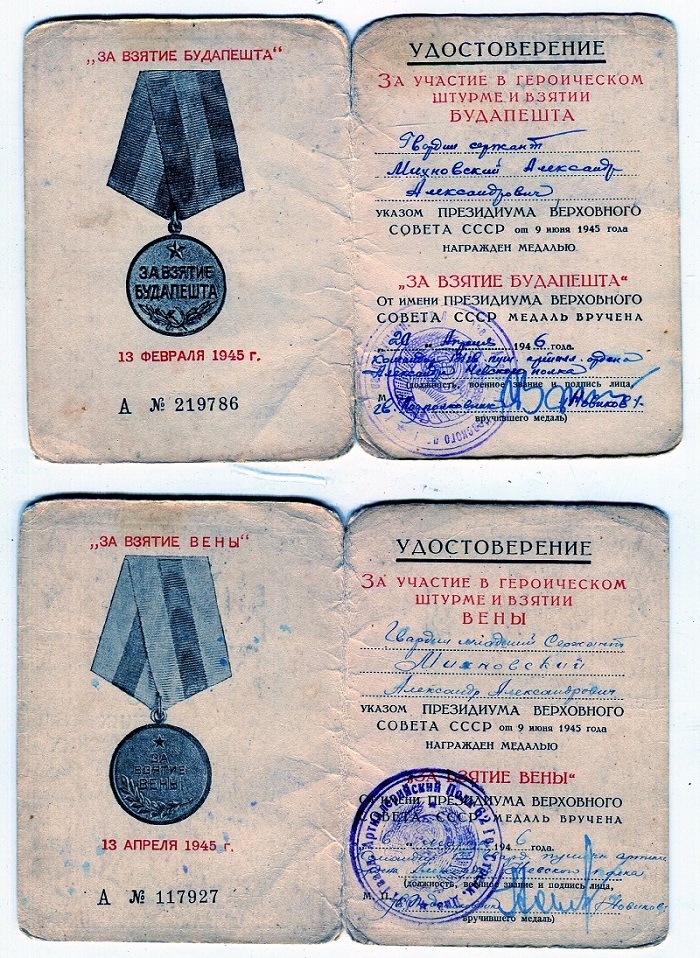 „ЗА ВЗЯТИЕ БУДАПЕШТА“
ЗА ВЗЯТИЕ
БУДАПЕШТА
13 ФЕВРАЛЯ 1945 г.
А № 219786
УДОСТОВЕРЕНИЕ
ЗА УЧАСТИЕ В ГЕРОИЧЕСКОМ
ШТУРМЕ И ВЗЯТИИ
БУДАПЕШТА
Гвардии сержант
Михновский Александр
Александрович
УКАЗОМ ПРЕЗИДИУМА ВЕРХОВНОГО
СОВЕТА СССР от 9 июня 1945 года
НАГРАЖДЕН МЕДАЛЬЮ
„ЗА ВЗЯТИЕ БУДАПЕШТА“
От имени ПРЕЗИДИУМА ВЕРХОВНОГО
СОВЕТА СССР МЕДАЛЬ ВРУЧЕНА
Апреля 1946 года.
Командир
Александра Невского полка
(должность, военное звание и подпись лица,
М.
Новиков
вручившего медаль)
„ЗА ВЗЯТИЕ ВЕНЫ“
ЗА
ВЗЯТИЕ
ВЕНЫ
13 АПРЕЛЯ 1945 г.
А № 117927
УДОСТОВЕРЕНИЕ
ЗА УЧАСТИЕ В ГЕРОИЧЕСКОМ
ШТУРМЕ И ВЗЯТИИ
ВЕНЫ
Гвардии младший Сержант
Михновский
Александр Александрович
УКАЗОМ ПРЕЗИДИУМА ВЕРХОВНОГО
СОВЕТА СССР от 9 июня 1945 года
НАГРАЖДЕН МЕДАЛЬЮ
„ЗА ВЗЯТИЕ ВЕНЫ“
От имени ПРЕЗИДИУМА ВЕРХОВНОГО
СОВЕТА СССР МЕДАЛЬ ВРУЧЕНА
1946 года.
Невского полка
(должность, военное звание и подпись лица,
М. П.
Новиков
вручившего медаль)
Артиллерийский